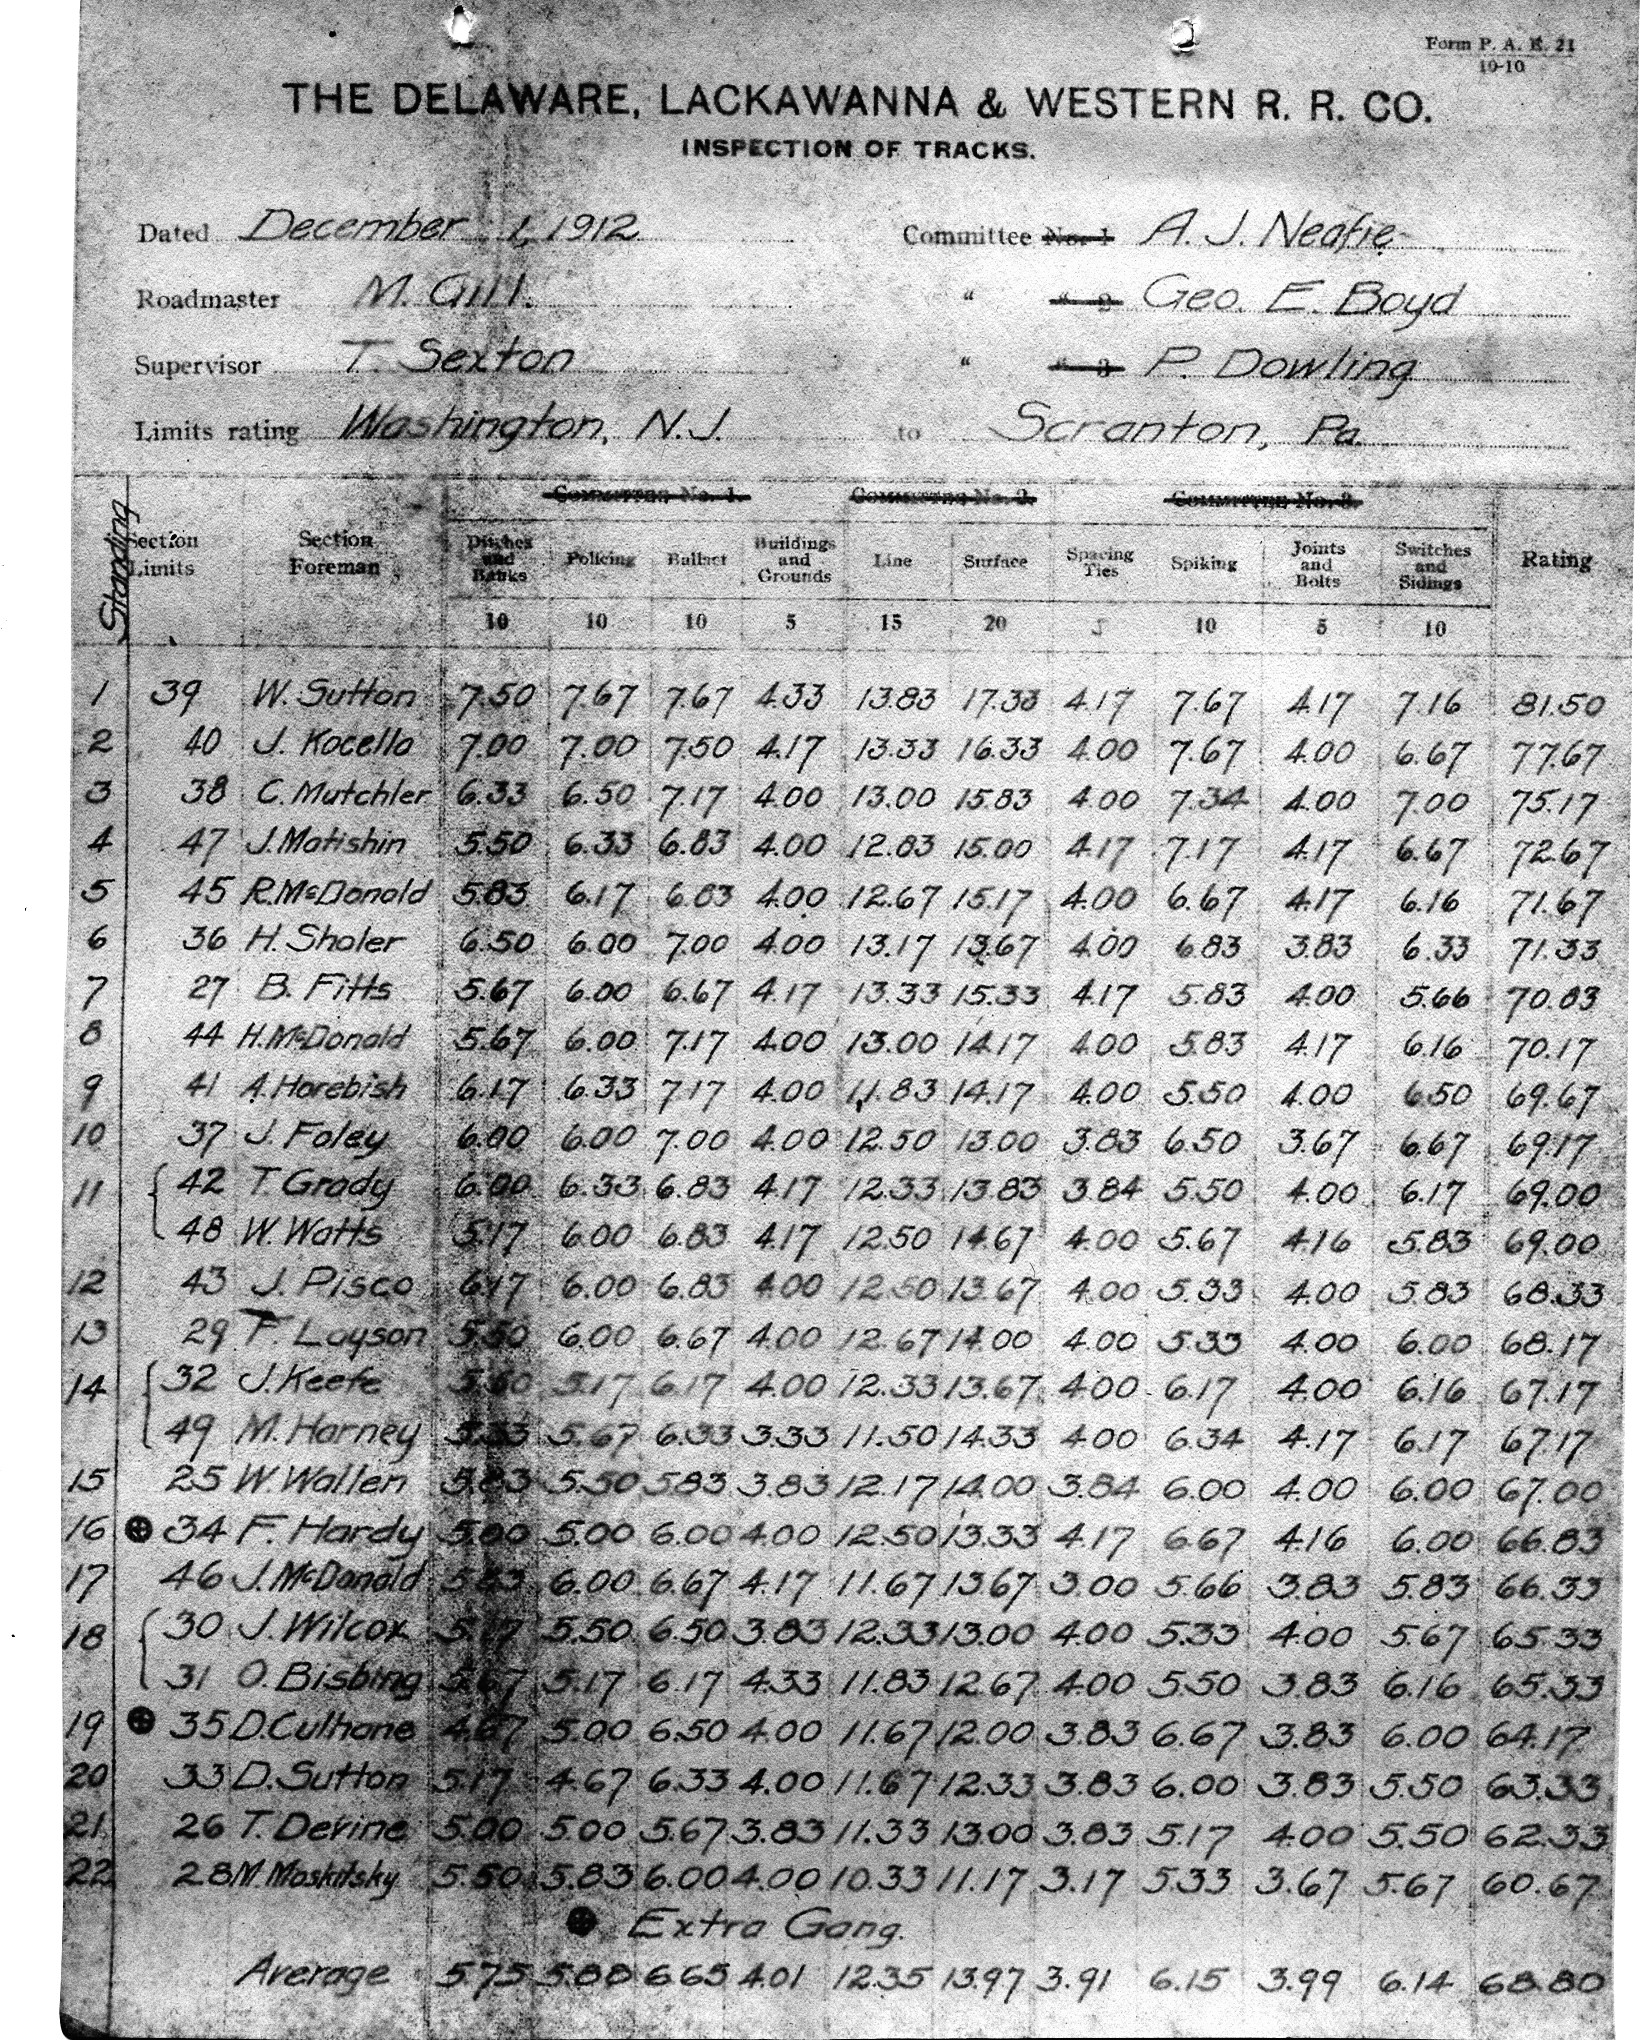 Form P. A. E. 21
10-10
THE DELAWARE, LACKAWANNA & WESTERN R. R. CO.
INSPECTION OF TRACKS.
Dated December 1, 1912 Committee No. 1 A. J. Neafie
Roadmaster M. Gill. " " 2 Geo. E. Boyd
Supervisor T. Sexton " " 3 P. Dowling
Limits rating Washington, N.J. to Scranton, Pa.
Committee No. 1. Committee No. 2. Committee No. 3.
Standing Section Limits Section Foreman Ditches and Banks Policing Ballast Buildings and Grounds Line Surface Spacing Ties Spiking Joints and Bolts Switches and Sidings Rating
10 10 10 5 15 20 5 10 5 10
1 39 W. Sutton 7.50 7.67 7.67 4.33 13.83 17.33 4.17 7.67 4.17 7.16 81.50
2 40 J. Kocella 7.00 7.00 7.50 4.17 13.33 16.33 4.00 7.67 4.00 6.67 77.67
3 38 C. Mutchler 6.33 6.50 7.17 4.00 13.00 15.83 4.00 7.34 4.00 7.00 75.17
4 47 J. Matishin 5.50 6.33 6.83 4.00 12.83 15.00 4.17 7.17 4.17 6.67 72.67
5 45 R. McDonald 5.83 6.17 6.83 4.00 12.67 15.17 4.00 6.67 4.17 6.16 71.67
6 36 H. Shaler 6.50 6.00 7.00 4.00 13.17 13.67 4.00 6.83 3.83 6.33 71.33
7 27 B. Fitts 5.67 6.00 6.67 4.17 13.33 15.33 4.17 5.83 4.00 5.66 70.83
8 44 H. McDonald 5.67 6.00 7.17 4.00 13.00 14.17 4.00 5.83 4.17 6.16 70.17
9 41 A. Horebish 6.17 6.33 7.17 4.00 11.83 14.17 4.00 5.50 4.00 6.50 69.67
10 37 J. Foley 6.00 6.00 7.00 4.00 12.50 13.00 3.83 6.50 3.67 6.67 69.17
11 42 T. Grady 6.00 6.33 6.83 4.17 12.33 13.83 3.84 5.50 4.00 6.17 69.00
48 W. Watts 5.17 6.00 6.83 4.17 12.50 14.67 4.00 5.67 4.16 5.83 69.00
12 43 J. Pisco 6.17 6.00 6.83 4.00 12.50 13.67 4.00 5.33 4.00 5.83 68.33
13 29 F. Layson 5.50 6.00 6.67 4.00 12.67 14.00 4.00 5.33 4.00 6.00 68.17
14 32 J. Keefe 5.50 5.17 6.17 4.00 12.33 13.67 4.00 6.17 4.00 6.16 67.17
49 M. Harney 5.33 5.67 6.33 3.33 11.50 14.33 4.00 6.34 4.17 6.17 67.17
15 25 W. Wallen 5.83 5.50 5.83 3.83 12.17 14.00 3.84 6.00 4.00 6.00 67.00
16 ⊕ 34 F. Hardy 5.00 5.00 6.00 4.00 12.50 13.33 4.17 6.67 4.16 6.00 66.83
17 46 J. McDonald 5.83 6.00 6.67 4.17 11.67 13.67 3.00 5.66 3.83 5.83 66.33
18 30 J. Wilcox 5.17 5.50 6.50 3.83 12.33 13.00 4.00 5.33 4.00 5.67 65.33
31 O. Bisbing 5.67 5.17 6.17 4.33 11.83 12.67 4.00 5.50 3.83 6.16 65.33
19 ⊕ 35 D. Culhane 4.67 5.00 6.50 4.00 11.67 12.00 3.83 6.67 3.83 6.00 64.17
20 33 D. Sutton 5.17 4.67 6.33 4.00 11.67 12.33 3.83 6.00 3.83 5.50 63.33
21 26 T. Devine 5.00 5.00 5.67 3.83 11.33 13.00 3.83 5.17 4.00 5.50 62.33
22 28 M. Maskitsky 5.50 5.83 6.00 4.00 10.33 11.17 3.17 5.33 3.67 5.67 60.67
⊕ Extra Gang.
Average 5.75 5.88 6.65 4.01 12.35 13.97 3.91 6.15 3.99 6.14 68.80